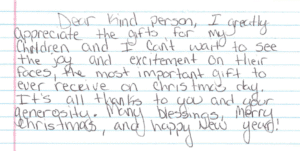 Dear Kind person, I greatly
appreciate the gifts for my
Children and I Can't wait to see
the joy and excitement on their
faces, the most important gift to
ever receive on christmas day.
It's all thanks to you and your
generosity. Many blessings, Merry
christmas, and happy New year!